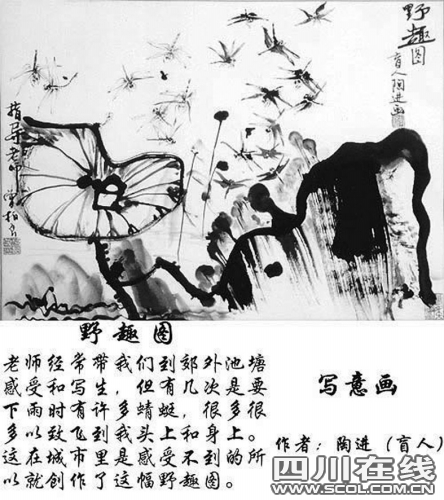 野
趣
图
盲人陶进画
指导老师
野趣图
老师经常带我们到郊外池塘
感受和写生，但有几次是要
下雨时有许多蜻蜓，很多很
多以致飞到我头上和身上。
这在城市里是感受不到的所
以就创作了这幅野趣图。
写意画
作者：陶进（盲人）
四川在线
WWW.SCOL.COM.CN